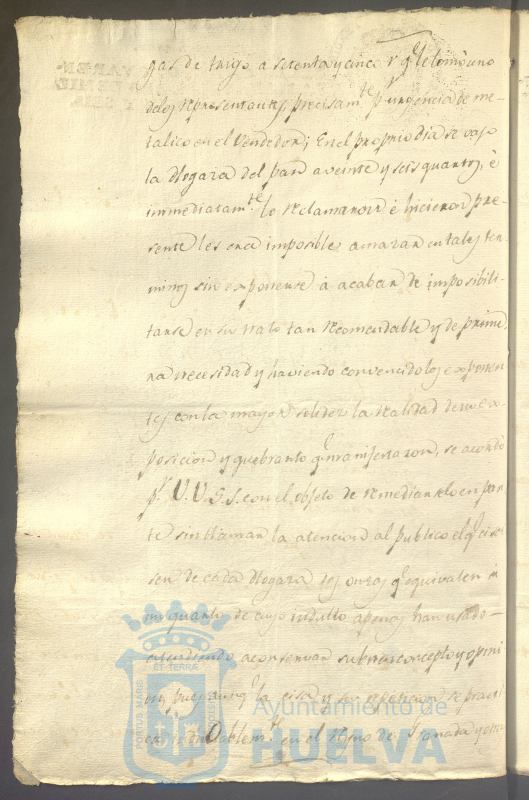 gas de trigo a setenta y cinco r.^s q.^e le tomò uno
de los representantes precisam.^te p.^r urgencia de me-
talico en el Vendedor; En el proprio dia se vajo
la Hogaza del pan a veinte y seis quartos, è
immediatam.^te lo reclamaron è hicieron pre-
sente les era imposible amasar en tales ter-
minos sin exponerse à acabar de imposibili-
tarse en su trato tan recomendable y de prime-
ra necesidad y haviendo convencido los exponen-
tes con la mayor solidez la realidad de su ex-
posicion y quebranto q.^e manifestaron, se acordo
p.^r V.V.S.S. con el objeto de remediarselo en par-
te sin llamar la atencion al publico el q.^e cisa-
sen de cada Hogaza tes onzas q.^e equivalen à
un quarto de cuyo indulto apenas han usado
atendiendo a conservar su buen concepto y opini
on, pues aunq.^e la cisa y su repeticion se practi
ca indudablem.^te en el Reyno de Granada y otros
Ayuntamiento de
HUELVA
PORTUS MARIS
ET TERRÆ